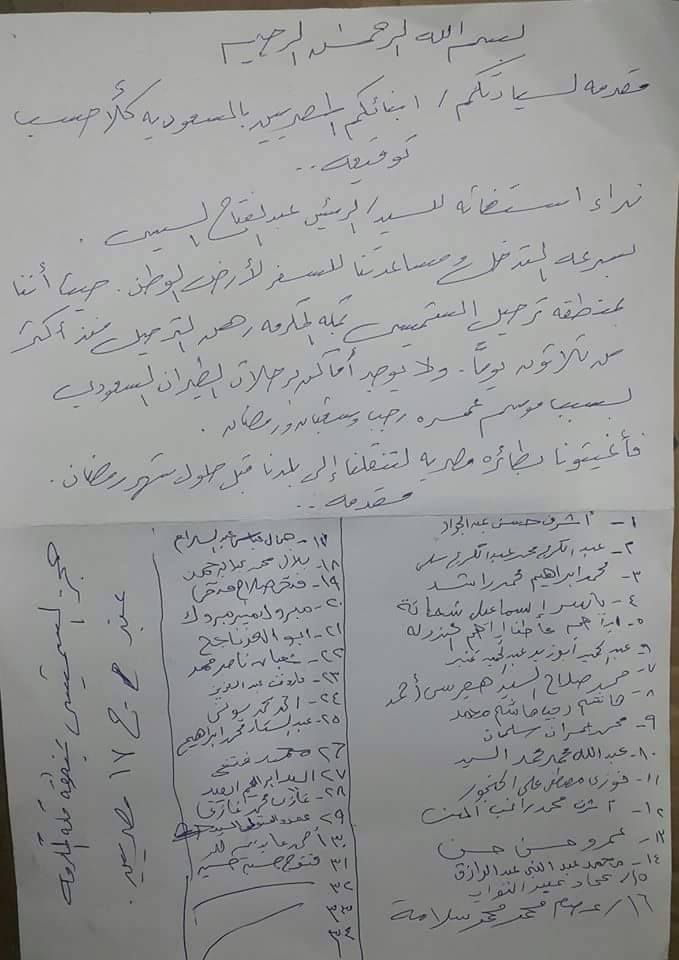 بسم الله الرحمن الرحيم
مقدمه لسيادتكم / ابنائكم المصريين بالسعوديه كلاً حسب
توقيعه ..
نداء استغاثه للسيد / الرئيس عبدالفتاح السيسى .
بسرعه التدخل ومساعدتنا للسفر لأرض الوطن . حيث أننا
بمنطقه ترحيل الشميسى بمكه المكرمه رهن الترحيل منذ أكثر
من ثلاثون يوماً . ولا يوجد أماكن برحلات الطيران السعودي
بسبب موسم عمره رجب وشعبان ورمضان .
فأغيثونا بطائره مصريه لتنقلنا إلى بلدنا قبل حلول شهر رمضان .
مقدمه ..
١ - أشرف حسن عبدالجواد
٢ - عبدالكريم محمد عبدالكريم
٣ - محمد ابراهيم محمد راشد
٤ - ياسر إسماعيل شحاتة
٥ - ابراهيم عاطف ابراهيم
٦ عبدالحميد ابوزيد عبدالحميد
٧ - محمد صلاح السيد أحمد
٨ - هاشم رجب هاشم محمد
٩ - محمد عمران سلمان
١٠ - عبدالله محمد محمد السيد
١١ - فوزى مصطفى على
١٢ - اشرف محمد راغب
١٣ - عمرو حسن حسن
١٤ - محمد عبد النبى عبد الرازق
١٥ / عماد عبد التواب
١٦ / عصام محمد محمد سلامة
١٧ - جمال عباس عبدالسلام
١٨ - بلال محمد
١٩ - فتحى صلاح فتحى
٢٠ - مبروك مبروك
٢١ - ابو العز ناجح
٢٢ - شعبان ناصر محمد
٢٣ - عبد العزيز
٢٤ - احمد محمد يونس
٢٥ - عبدالستار محمد ابراهيم
٢٦ محمد فتحى
٢٧ السيد ابراهيم السيد
٢٨ - غازى محمد غازى
٢٩ محمود المتولى السيد
٣٠ أحمد
٣١ فتوح
٣٢
٣٣
٣٤
عنبر ح ١٧ مصريين .
حجز الشميسى بمنطقه مكه المكرمه